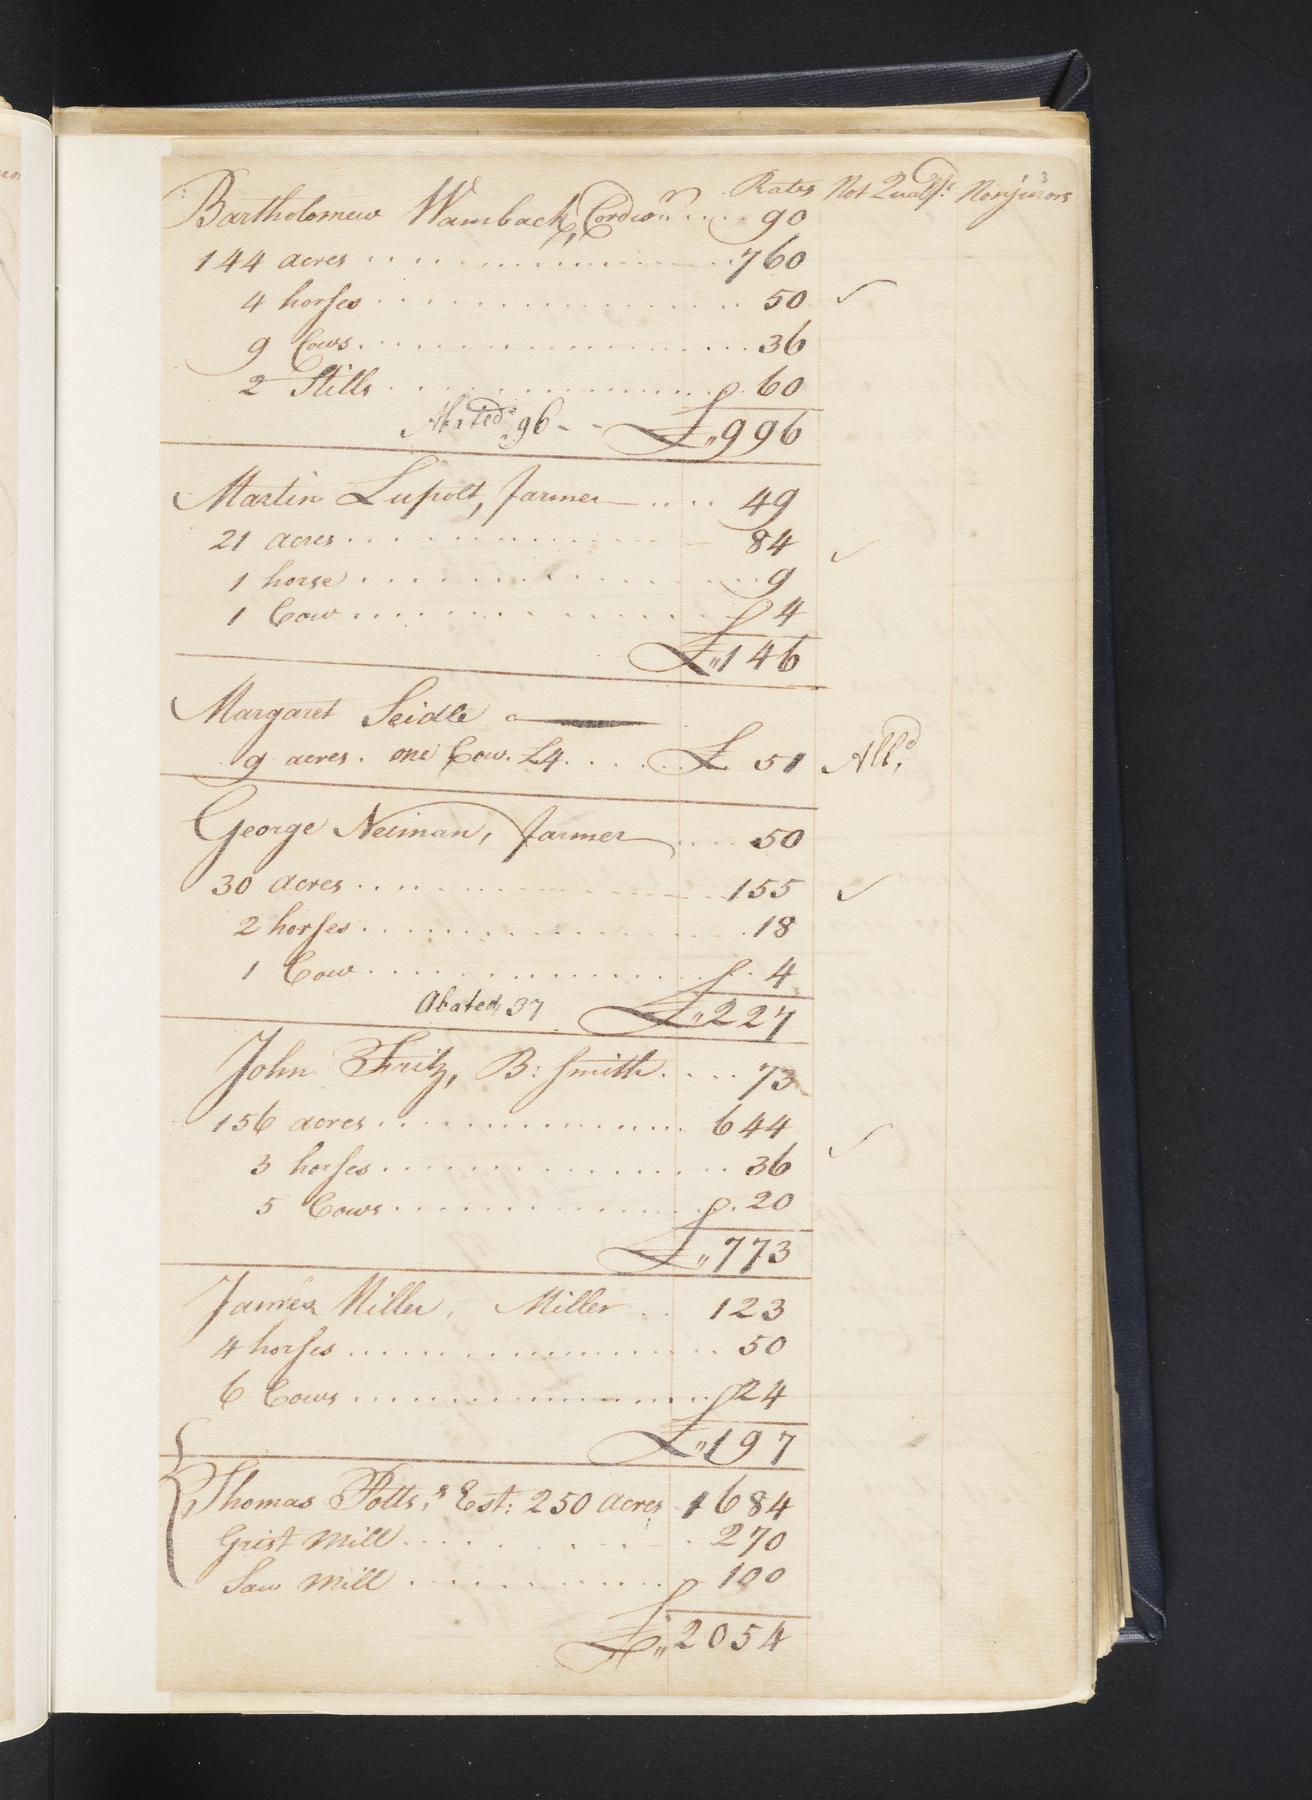 Rates Not Qualfd: Nonjurors
Bartholomew Wamback, Cordwr. .... 90
144 acres ........ 760
4 horses ........ 50 ✓
9 Cows ........ 36
2 Stills ........ 60
Abated 96 - - £"996
Martin Lupolt, farmer .... 49
21 acres ........ 84 ✓
1 horse ........ 9
1 Cow ........ 4
£"146
Margaret Seidle
9 acres. one Cow. £4. .... £ 51 Alld.
George Neiman, farmer .... 50
30 acres ........ 155 ✓
2 horses ........ 18
1 Cow ........ 4
Abated, 37 £"227
John Fritz, B: Smith .... 73
156 acres ........ 644
3 horses ........ 36 ✓
5 Cows ........ 20
£"773
James Miller, Miller .. 123
4 horses ........ 50
6 Cows ........ 24
£"197
Thomas Potts,s Est: 250 acres 1684
Grist Mill ........ 270
Saw Mill ........ 100
£"2054